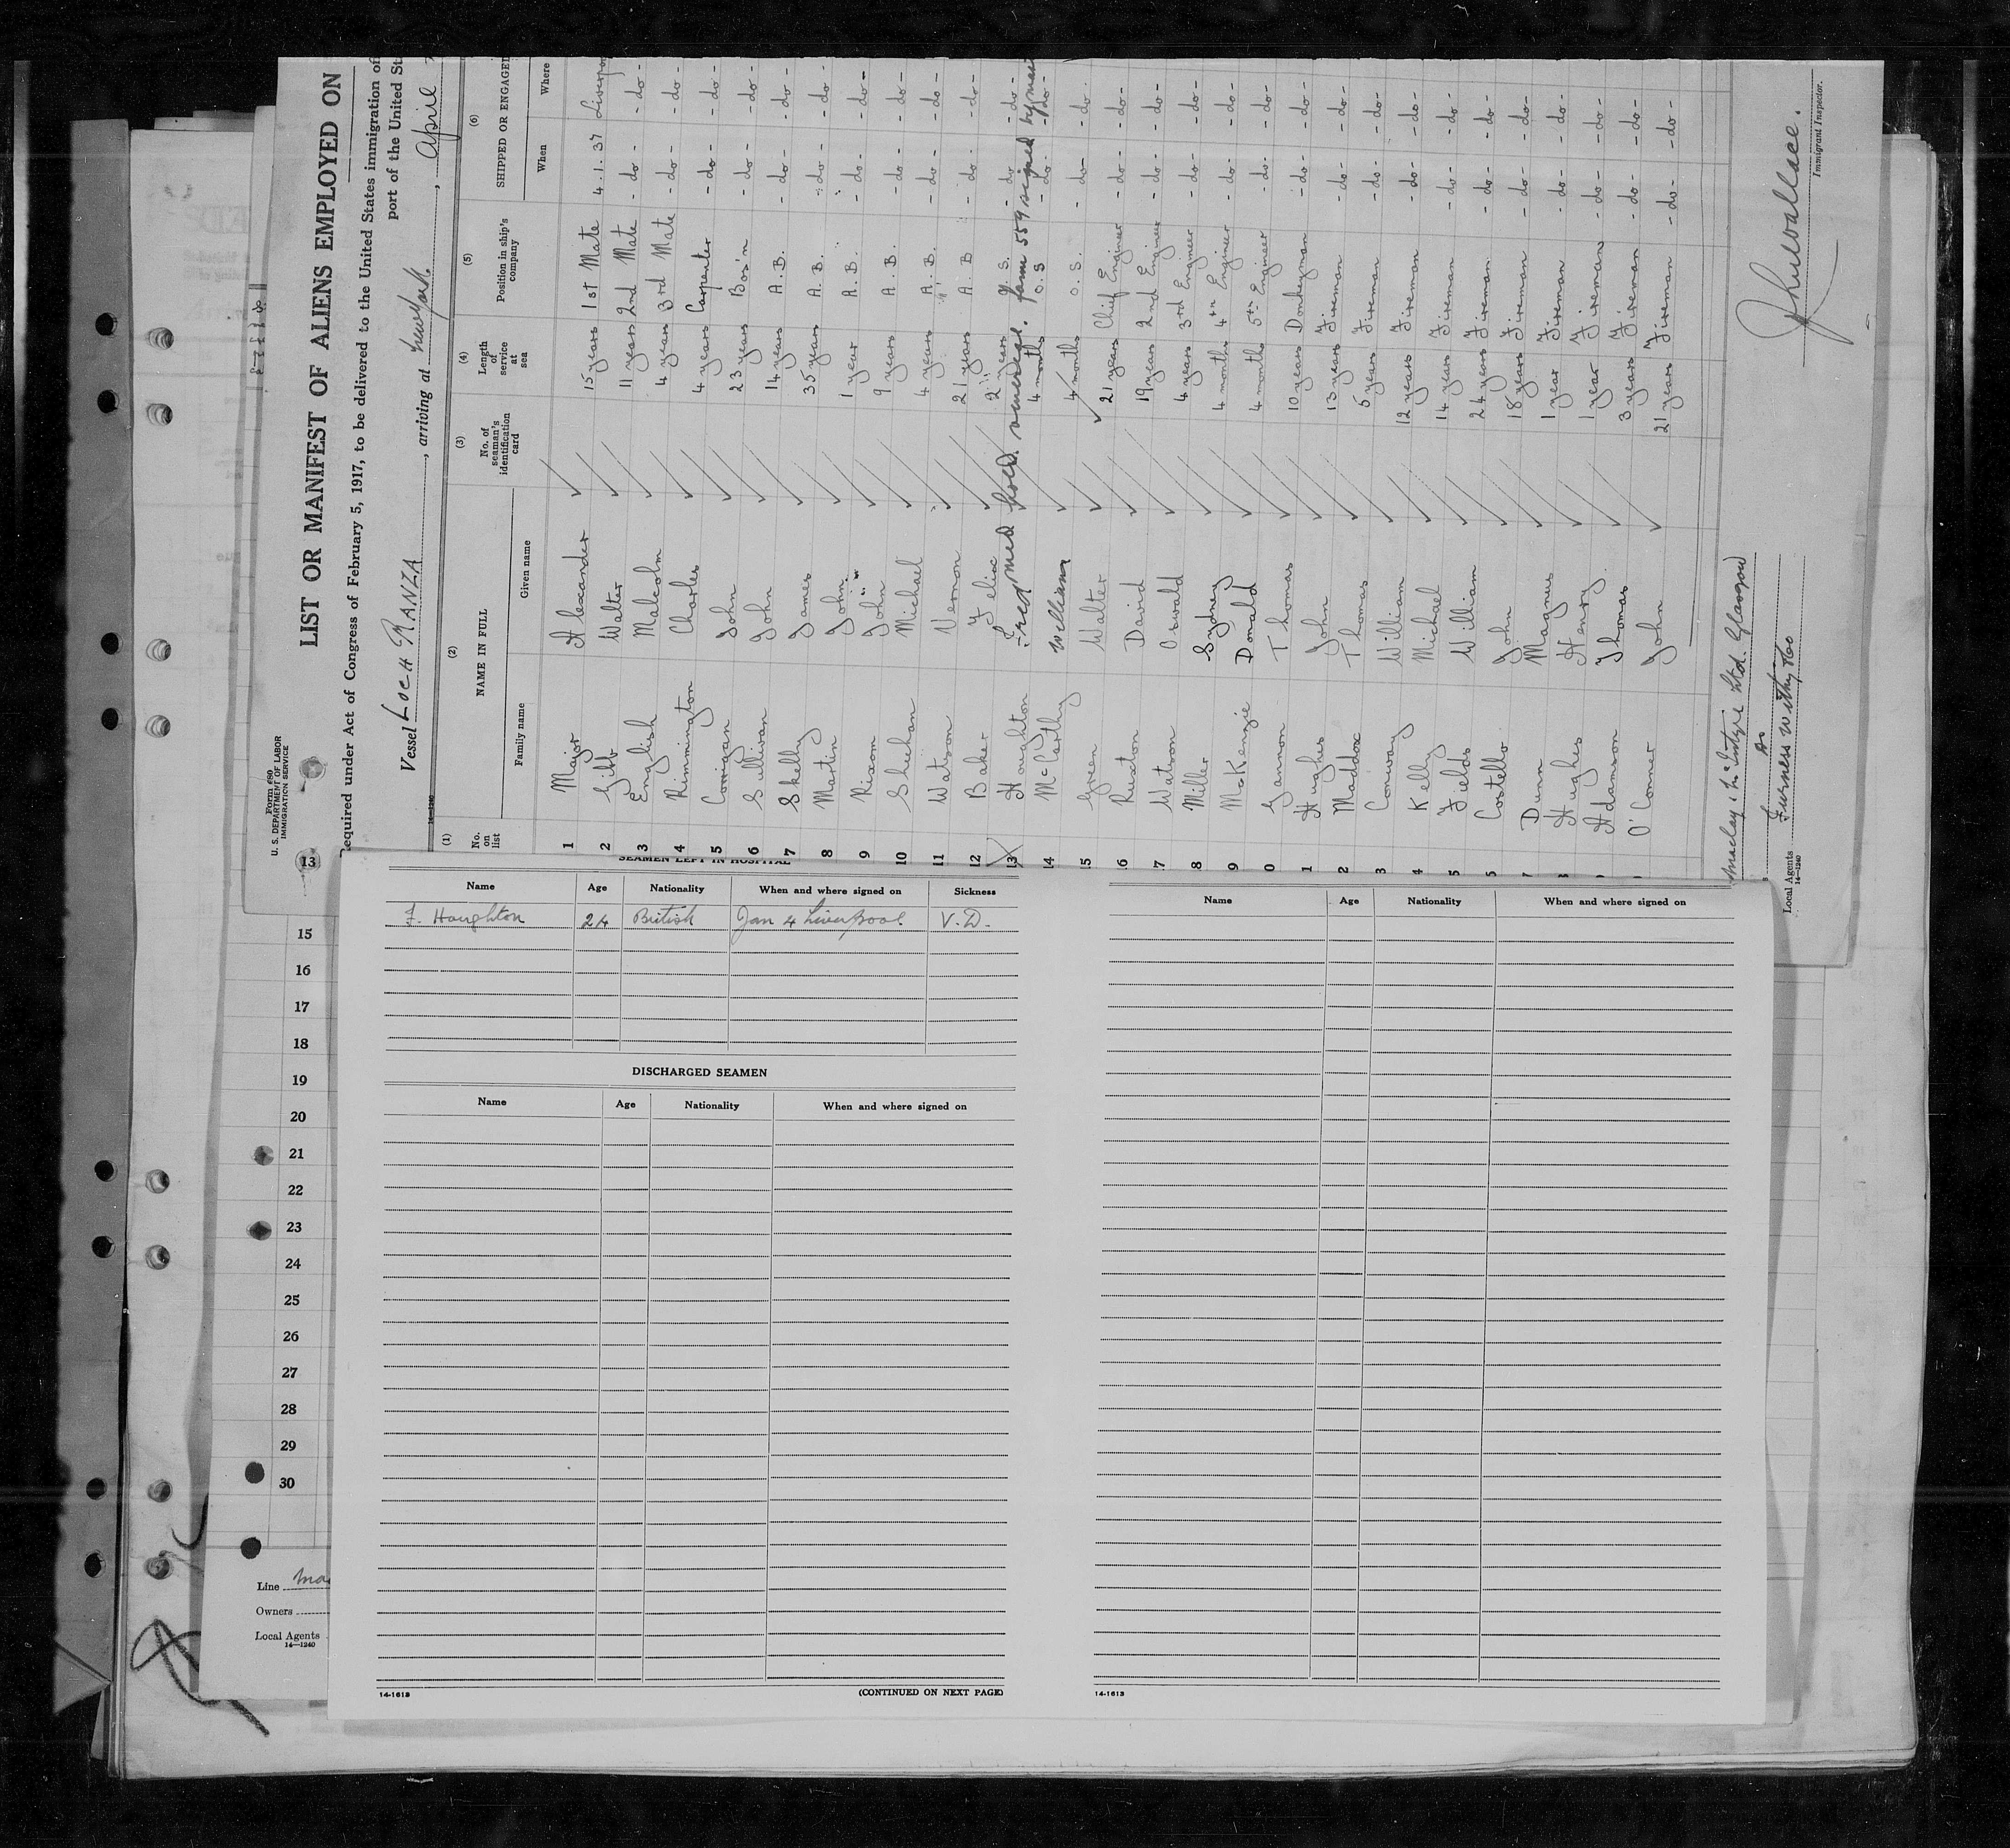 Form 680
U. S. DEPARTMENT OF LABOR
IMMIGRATION SERVICE
LIST OR MANIFEST OF ALIENS EMPLOYED ON
Required under Act of Congress of February 5, 1917, to be delivered to the United States immigration of
port of the United St
Vessel LOCH RANZA, arriving at New York, April
14-1240
(1) (2) (3) (4) (5) (6)
No. on list NAME IN FULL No. of seaman's identification card Length of service at sea Position in ship's company SHIPPED OR ENGAGED
Family name Given name When Where
1 Major Alexander 15 years 1st Mate 4.1.37 Liverpoo
2 Gibb Walter 11 years 2nd Mate - do - - do -
3 English Malcolm 4 years 3rd Mate - do - - do -
4 Rimmington Charles 4 years Carpenter - do - - do -
5 Corrigan John 23 years Bos'n - do - - do -
6 Sullivan John 14 years A.B. - do - - do -
7 Skelly James 35 years A.B. - do - - do -
8 Martin John 1 year A.B. - do - - do -
9 Rixom John 9 years A.B. - do - - do -
10 Sheehan Michael 4 years A.B. - do - - do -
11 Watson Vernon 21 years A.B - do - - do -
12 Baker Felix 2 years O.S. - do - - do -
med hold venereal. form 559 signed by mas
13 Houghton Fred 4 months O.S - do - - do -
14 McCarthy William 4 months O.S. - do - - do -
15 Green Walter 21 years Chief Engineer - do - - do -
16 Ruston David 19 years 2nd Engineer - do - - do -
17 Watson Oswald 4 years 3rd Engineer - do - - do -
8 Miller Sydney 4 months 4th Engineer - do - - do -
9 McKenzie Donald 4 months 5th Engineer - do - - do -
0 Gannon Thomas 10 years Donkeyman - do - - do -
1 Hughes John 13 years Fireman - do - - do -
2 Maddox Thomas 5 years Fireman - do - - do -
3 Conway William 12 years Fireman - do - - do -
4 Kelly Michael 14 years Fireman - do - - do -
5 Fields William 24 years Fireman - do - - do -
6 Costello John 18 years Fireman - do - - do -
7 Dunn Magnus 1 year Fireman - do - - do -
8 Hughes Henry 1 year Fireman - do - - do -
Adamson Thomas 3 years Fireman - do - - do -
O'Connor John 21 years Fireman - do - - do -
Maclay & McIntyre Ltd. Glasgow
Local Agents Furness Withy & Co
14-1240
Immigrant Inspector.
13
SEAMEN LEFT IN HOSPITAL
Name Age Nationality When and where signed on Sickness
F. Houghton 24 British Jan 4 Liverpool V.D.
DISCHARGED SEAMEN
Name Age Nationality When and where signed on
14-1613
(CONTINUED ON NEXT PAGE)
Name Age Nationality When and where signed on
14-1613
15
16
17
18
19
20
21
22
23
24
25
26
27
28
29
30
Line Mac
Owners
Local Agents
14-1240